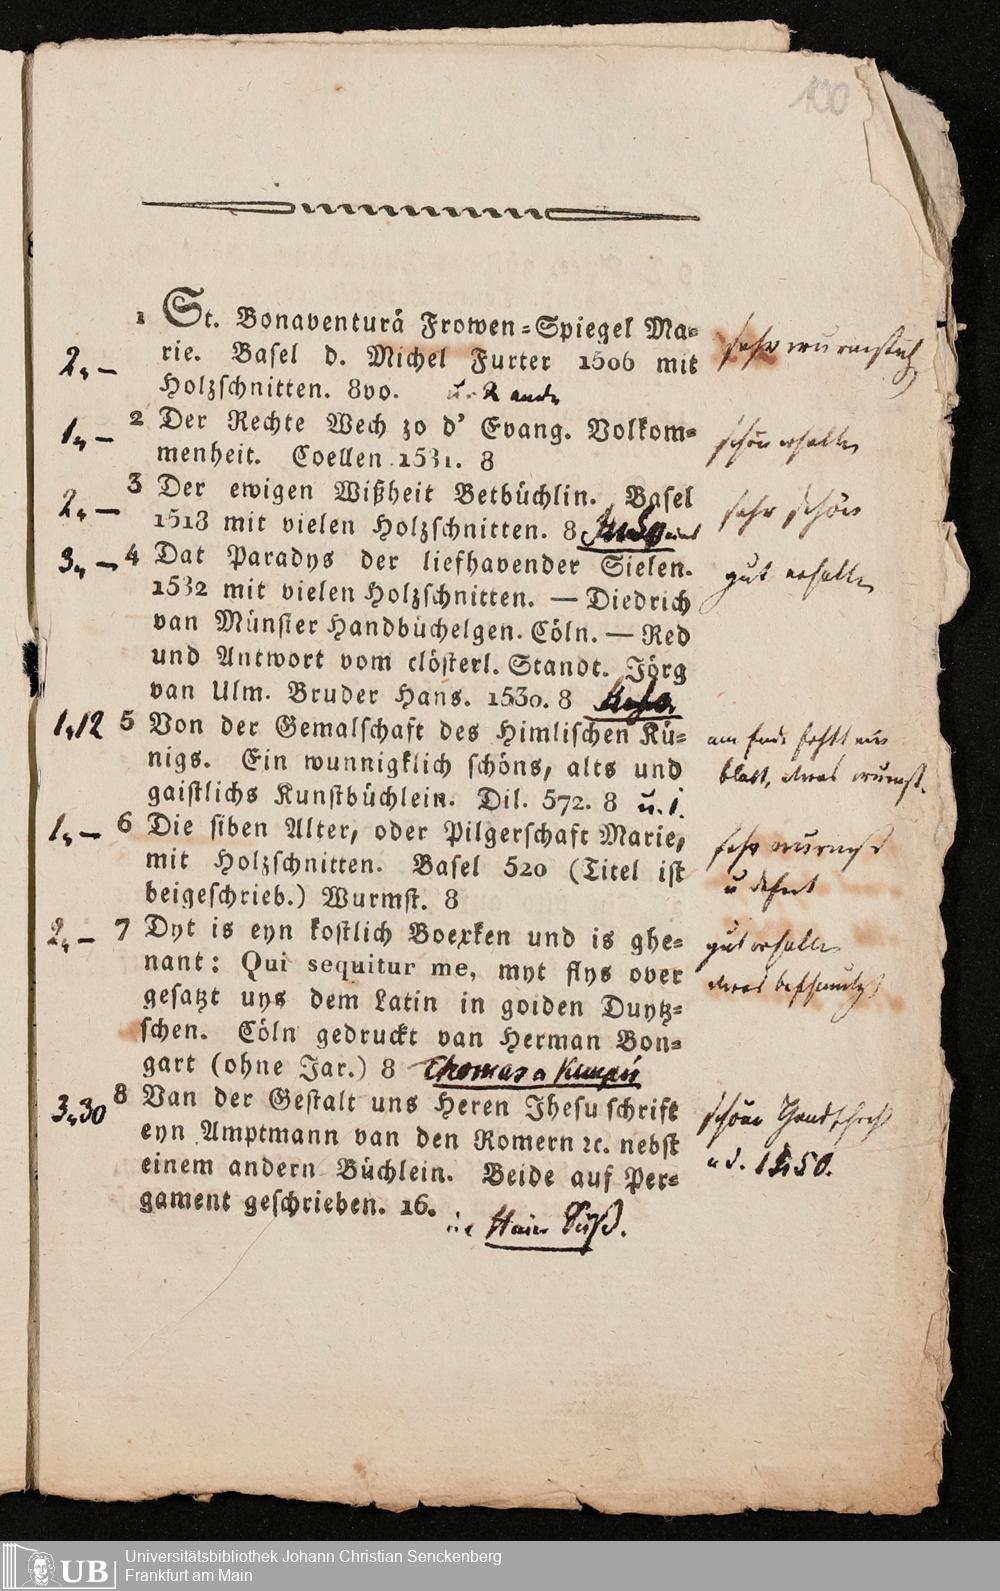 100
1 St. Bonaventurä Frowen-Spiegel Ma-
rie. Basel d. Michel Furter 1506 mit
2,, — Holzschnitten. 8vo.
sehr wurmstich
1,, — 2 Der Rechte Wech zo d' Evang. Volkom-
menheit. Coellen 1531. 8
schön erhalten
3 Der ewigen Wißheit Betbüchlin. Basel
2,, — 1518 mit vielen Holzschnitten. 8
sehr schön
3,, — 4 Dat Paradys der liefhavender Sielen.
1532 mit vielen Holzschnitten. — Diedrich
van Münster Handbüchelgen. Cöln. — Red
und Antwort vom clösterl. Standt. Jörg
van Ulm. Bruder Hans. 1530. 8
gut erhalten
1,,12 5 Von der Gemalschaft des Himlischen Kü-
nigs. Ein wunnigklich schöns, alts und
gaistlichs Kunstbüchlein. Dil. 572. 8 u. i.
am Ende fehlt ein
blatt, etwas wurmst.
1,, — 6 Die siben Alter, oder Pilgerschaft Marie,
mit Holzschnitten. Basel 520 (Titel ist
beigeschrieb.) Wurmst. 8
sehr wurmst
u defect
2,, — 7 Dyt is eyn kostlich Boexken und is ghe-
nant: Qui sequitur me, myt flys over
gesatzt uys dem Latin in goiden Duytz-
schen. Cöln gedruckt van Herman Bon-
gart (ohne Jar.) 8 Thomas a Kempis
gut erhalten
etwas beschmutzt
3,,30 8 Van der Gestalt uns Heren Jhesu schrift
eyn Amptmann van den Romern ꝛc. nebst
einem andern Büchlein. Beide auf Per-
gament geschrieben. 16.
schöne Handschrift
Süß.
UB
Universitätsbibliothek Johann Christian Senckenberg
Frankfurt am Main